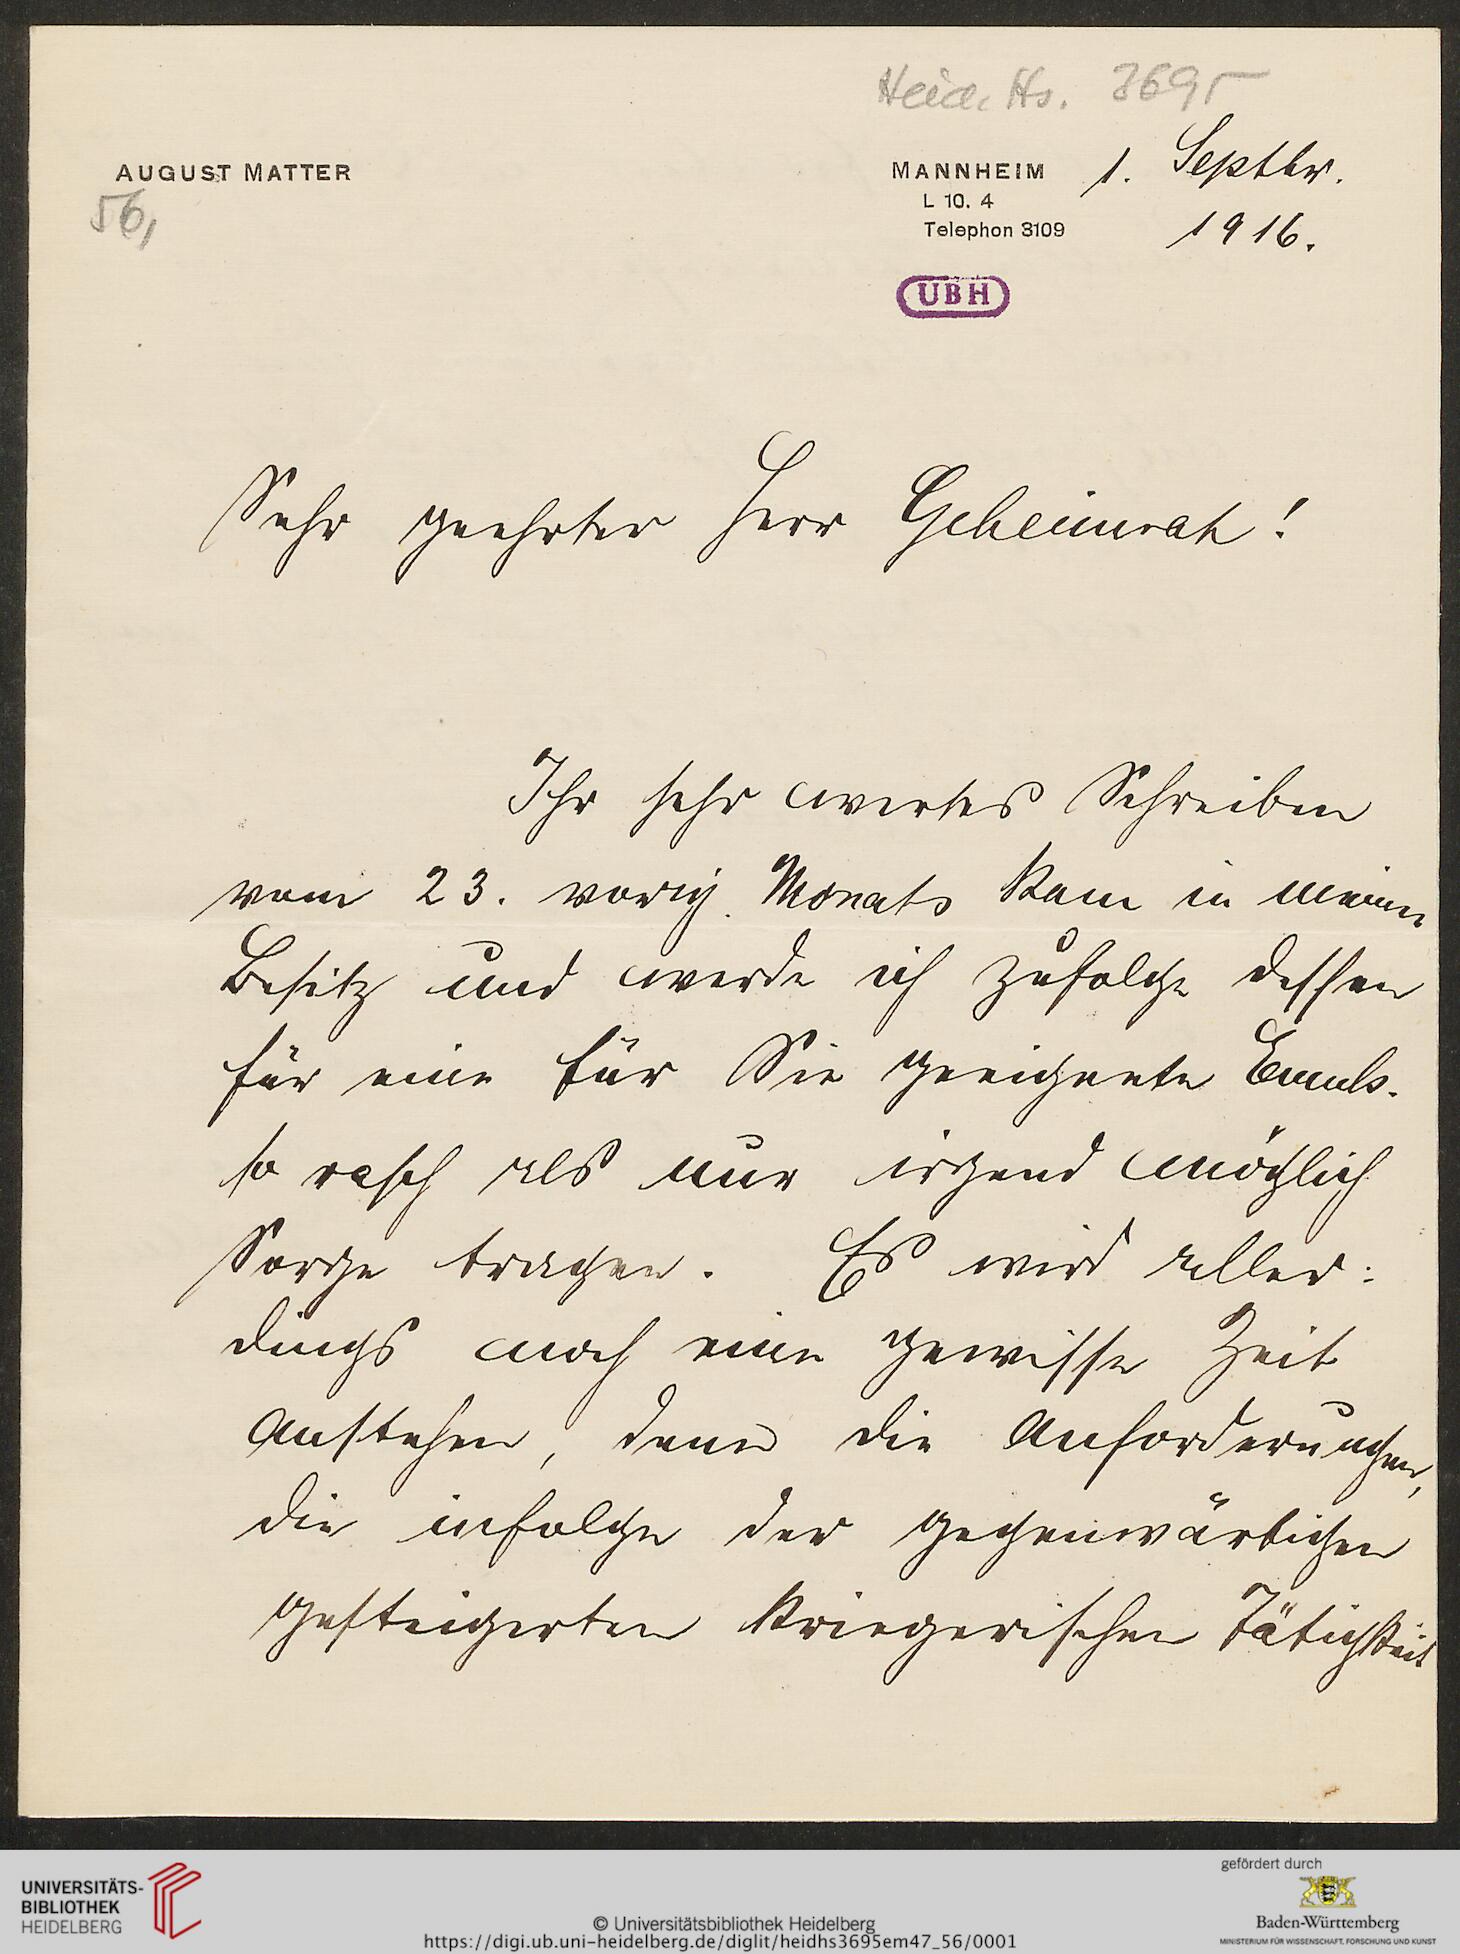 Heid. Hs. 3695
AUGUST MATTER
56,
MANNHEIM
L 10. 4
Telephon 3109
1. Septbr.
1916.
UBH
Sehr geehrter Herr Geheimrat!
Ihr sehr wertes Schreiben
vom 23. vorig. Monats kam in meinen
Besitz und werde ich zufolge dessen
für eine für Sie geeignete Emuls.
so rasch als nur irgend möglich
Sorge tragen. Es wird aller:
dings noch eine gewisse Zeit
anstehen, denn die Anforderungen,
die infolge der gegenwärtigen
gesteigerten kriegerischen Tätigkeit
UNIVERSITÄTS-
BIBLIOTHEK
HEIDELBERG
© Universitätsbibliothek Heidelberg
https://digi.ub.uni-heidelberg.de/diglit/heidhs3695em47_56/0001
gefördert durch
Baden-Württemberg
MINISTERIUM FÜR WISSENSCHAFT, FORSCHUNG UND KUNST